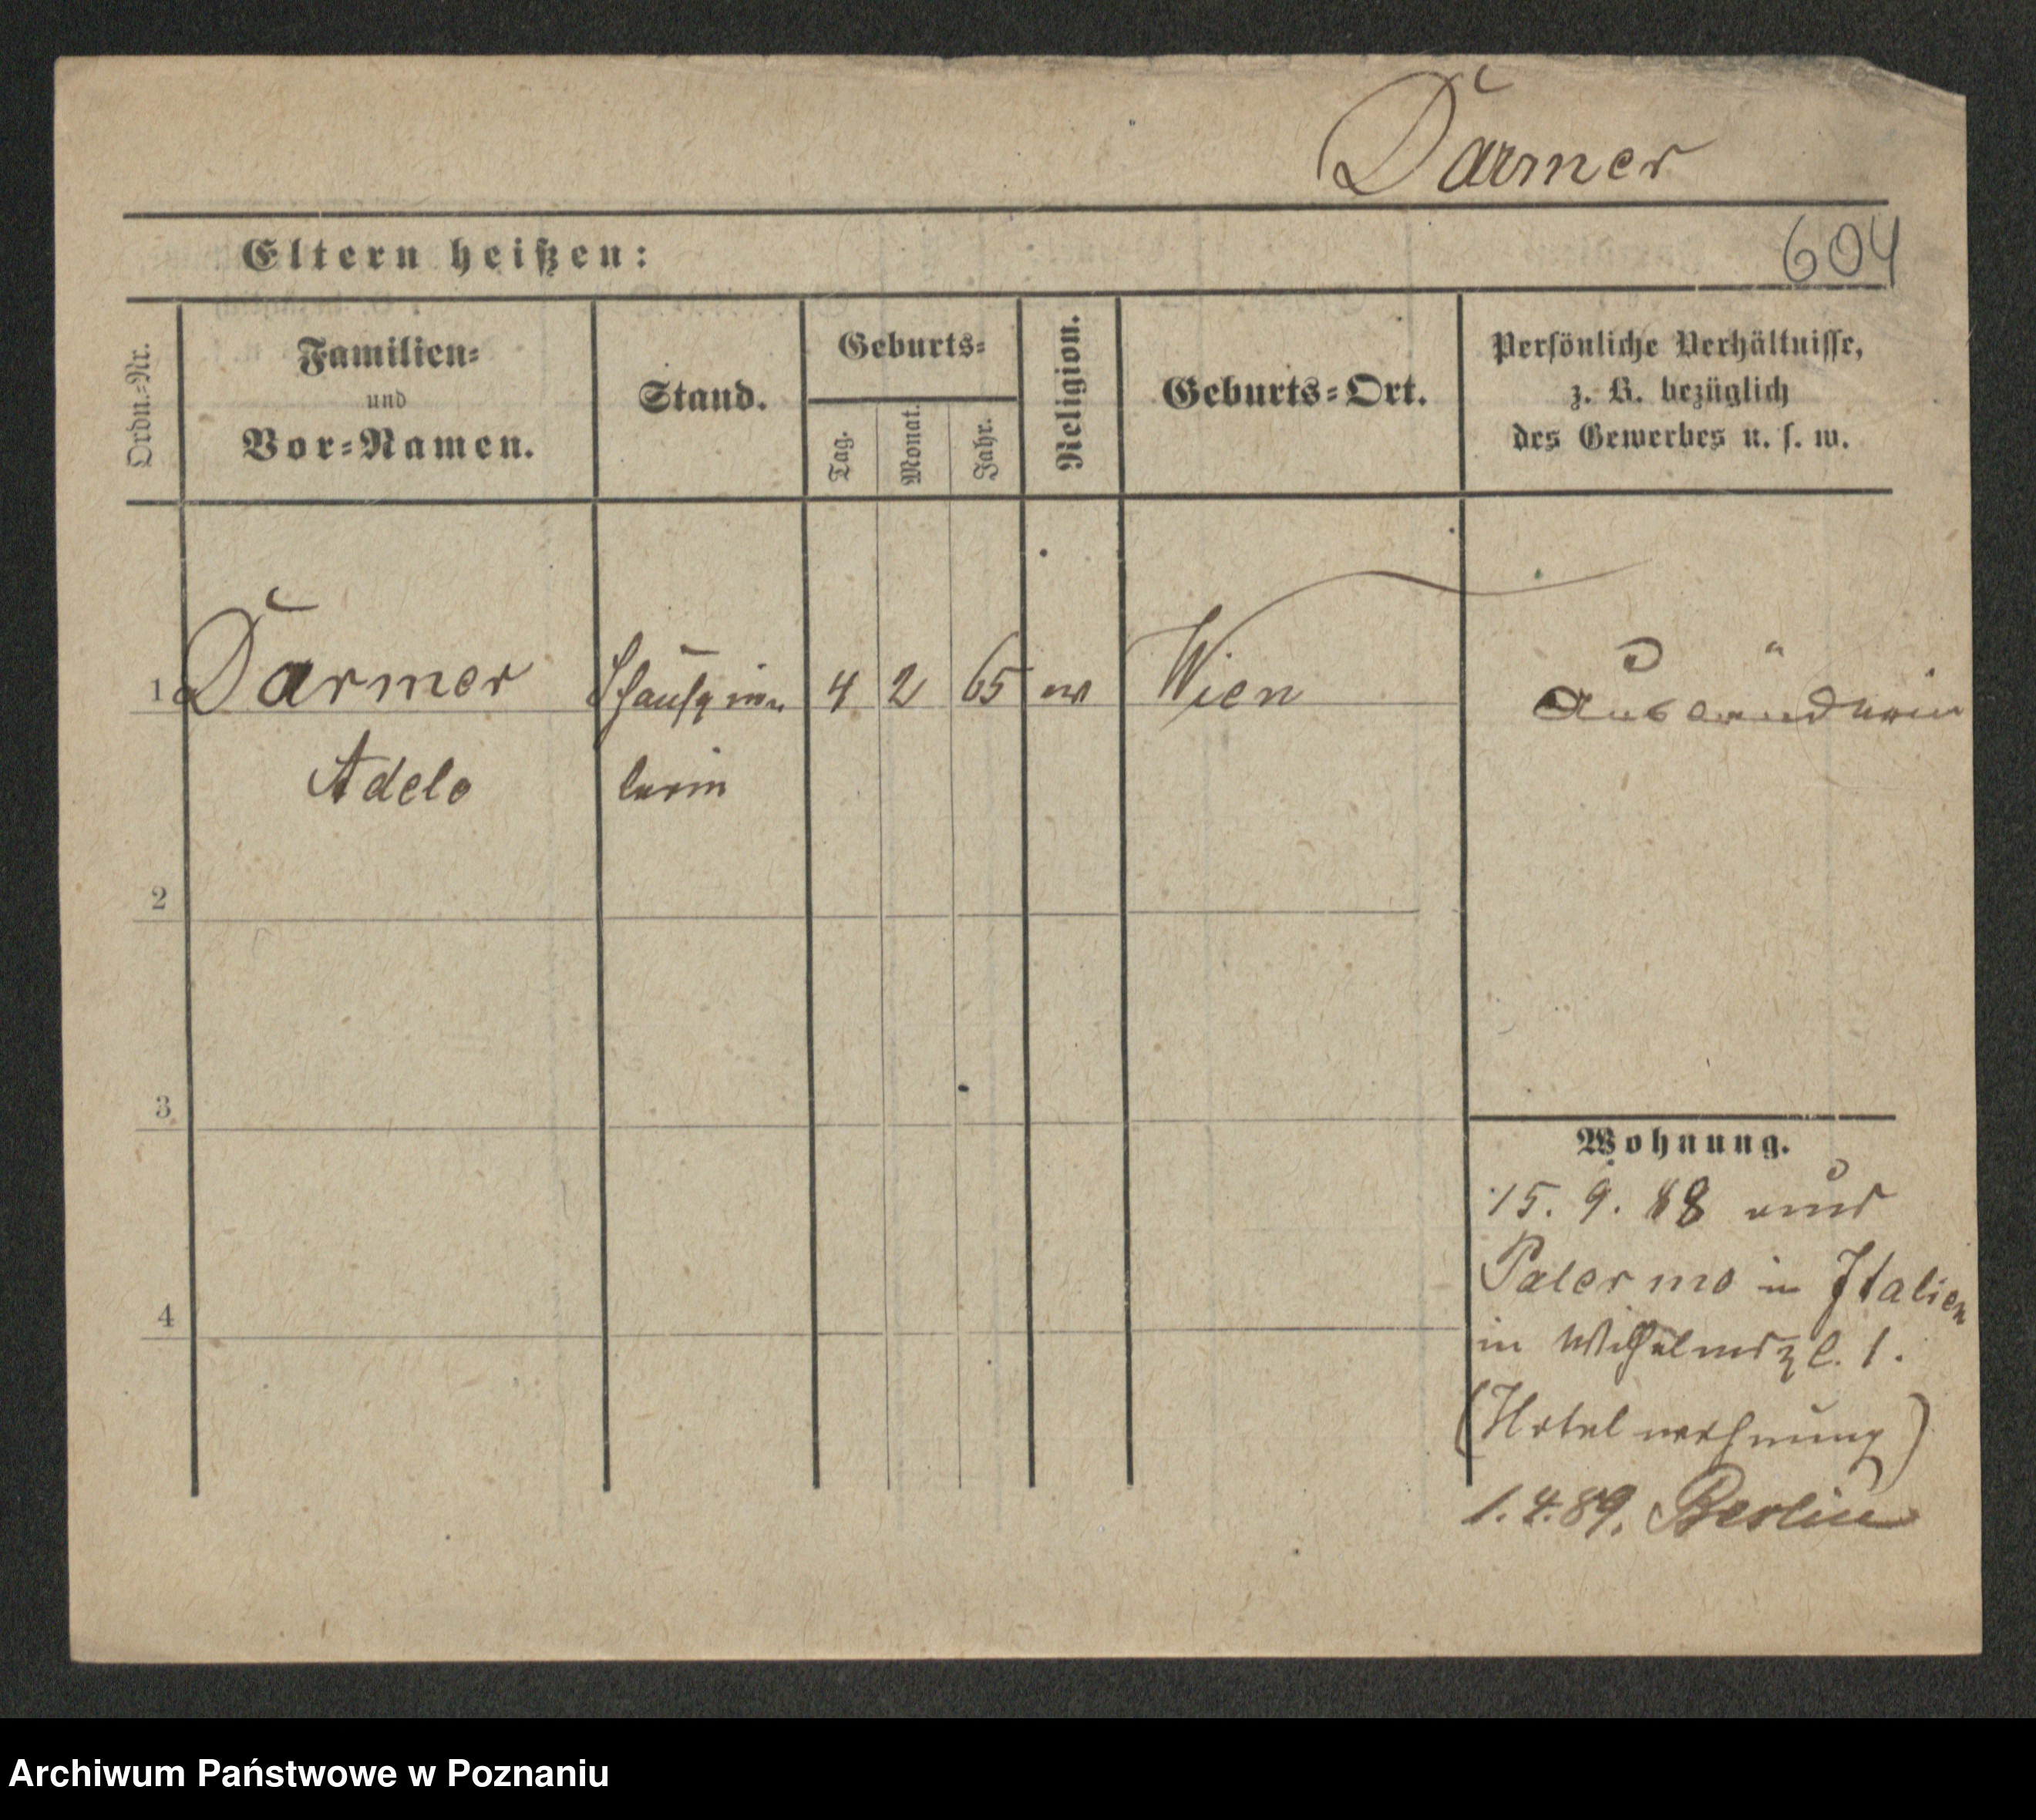 Darmer
604
Eltern heißen:
Ordn.=Nr.
Familien=
und
Vor=Namen.
Stand.
Geburts=
Tag.
Monat.
Jahr.
Religion.
Geburts=Ort.
Persönliche Verhältnisse,
z. B. bezüglich
des Gewerbes u. s. w.
1 Darmer 4 2 65 ev Wien Ausländerin
Adele
2
3
4
Wohnung.
15. 9. 88 aus
Palermo in Italien
in Wilhelmspl. 1.
(Hotelwohnung)
1.4.89. Berlin
Archiwum Państwowe w Poznaniu